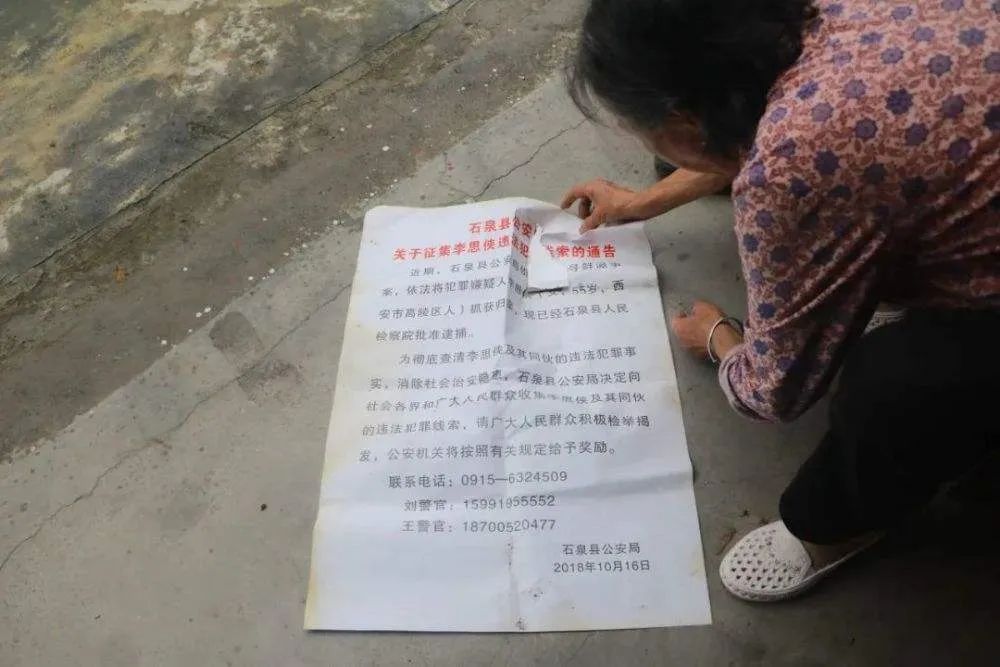 石泉县公安
关于征集李思侠违法犯 线索的通告
近期,石泉县公安
案,依法将犯罪嫌疑人 女,55岁,西
安市高陵区人)抓获归案,现已经石泉县人民
检察院批准逮捕。
为彻底查清李思侠及其同伙的违法犯罪事
实,消除社会治安隐患,石泉县公安局决定向
社会各界和广大人民群众收集李思侠及其同伙
的违法犯罪线索,请广大人民群众积极检举揭
发,公安机关将按照有关规定给予奖励。
联系电话:0915—6324509
刘警官:15991955552
王警官:18700520477
石泉县公安局
2018年10月16日